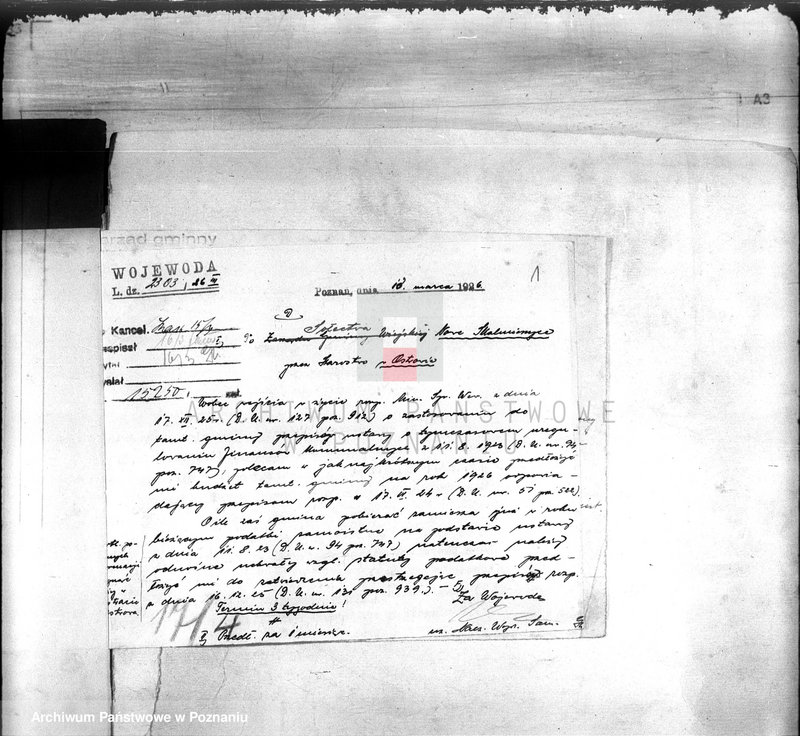 A3
rząd gminny
WOJEWODA
L. dz. 2303/26
Poznań, dnia 13 marca 1926.
1
Kancel.
pisał
15250
Do Sołectwa Wiejskiej Nowe Skalmierzyce
przez Starostwo w Ostrowie
Wobec wejścia w życie rozp. Min. Spr. Wew. z dnia
17. VII. 25 r. (D. U. nr. 127 poz. 912) o zastosowaniu do
tamt. gminy przepisów ustawy o tymczasowem uregu-
lowaniu finansów komunalnych z 11. 8. 1923 (D. U. nr. 94
poz. 747), polecam w jak najkrótszym czasie przedłożyć
mi budżet tamt. gminy na rok 1926 odpowia-
dający przepisom rozp. z 17. 24 r. (D. U. nr. 51 poz. 522).
O ile zaś gmina pobierać zamierza już w roku
bieżącym podatki samoistne na podstawie ustawy
z dnia 11. 8. 23 (D. U. nr. 94 poz. 747), natenczas należy
odnośne uchwały wzgl. statuty podatkowe przed-
łożyć mi do zatwierdzenia przestrzegając przepisów rozp.
z dnia 16. 12. 25 (D. U. nr. 130 poz. 939). —
Termin 3 tygodnie!
Za Wojewodę
17/4
Przedł. za 1 miesiąc.
nz. Nacz. Wydz. Sam.
ARCHIWUM PAŃSTWOWE
W POZNANIU
Archiwum Państwowe w Poznaniu